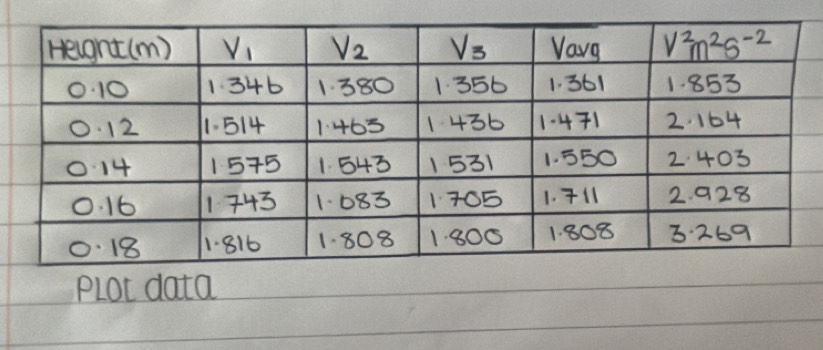 Height(m) V₁ V₂ V₃ Vavg V²m²s⁻²
0.10 1.346 1.380 1.356 1.361 1.853
0.12 1.514 1.463 1.436 1.471 2.164
0.14 1.575 1.543 1.531 1.550 2.403
0.16 1.743 1.683 1.705 1.711 2.928
0.18 1.816 1.808 1.800 1.808 3.269
Plot data